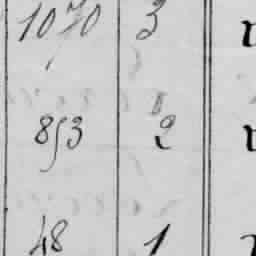 1070 3
853 2
48 1